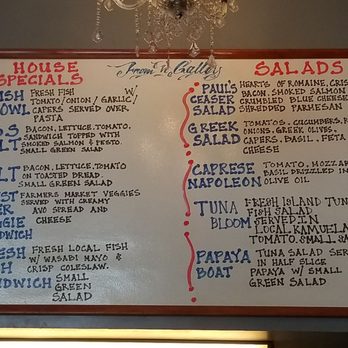 HOUSE
SPECIALS
FRESH FISH W/
TOMATO/ONION/GARLIC/
CAPERS SERVED OVER
PASTA
BACON, LETTUCE, TOMATO,
SANDWICH TOPPED WITH
SMOKED SALMON & PESTO.
SMALL GREEN SALAD
BACON, LETTUCE, TOMATO
ON TOASTED BREAD.
SMALL GREEN SALAD
FARMERS MARKET VEGGIES
SERVED WITH CREAMY
AVO SPREAD AND
CHEESE
FRESH LOCAL FISH
W/ WASABI MAYO &
CRISP COLESLAW.
SMALL
GREEN
SALAD
SALADS
PAUL'S
CEASER
SALAD
HEARTS OF ROMAINE, CRISP
BACON, SMOKED SALMON
CRUMBLED BLUE CHEESE
SHREDDED PARMESAN
GREEK
SALAD
TOMATOS, CUCUMBERS,
ONIONS, GREEK OLIVES,
CAPERS, BASIL, FETA
CHEESE
CAPRESE
NAPOLEON
TOMATO, MOZZAR
BASIL DRIZZLED IN
OLIVE OIL
TUNA
BLOOM
FRESH ISLAND TUNA
FISH SALAD
SERVED IN
LOCAL KAMUELA
TOMATO. SMALL SA
PAPAYA
BOAT
TUNA SALAD SERV
IN HALF SLICE
PAPAYA W/ SMALL
GREEN SALAD